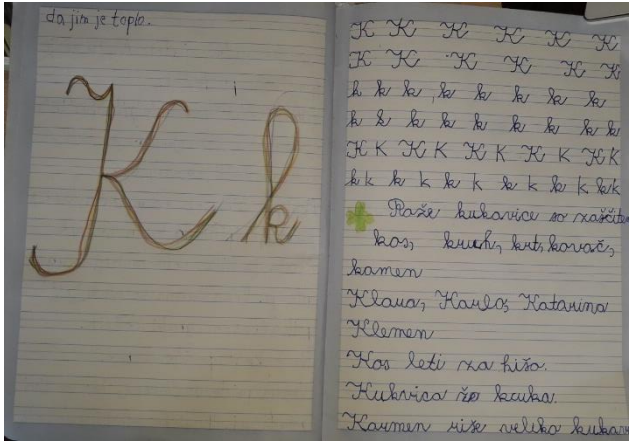 da jim je toplo.
K k
K K K K K K
K K K K K K
k k k k k k k k
k k k k k k k k k
K K K K K K K K K K
k k k k k k k k k k k k
Raže kukavice so zaščiten
kos, kruh, krt, kovač,
kamen
Klara, Karlo, Katarina
Klemen
Kos leti za hišo.
Kukvica že kuka.
Karmen riše veliko kukav